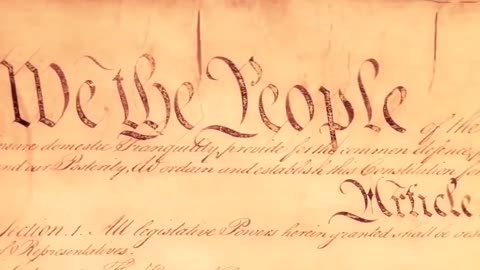 We the People of the
nsure domestic Tranquility, provide for the common defence,
and our Posterity, do ordain and establish this Constitution for
Article.
Section. 1. All legislative Powers herein granted shall be ves
of Representatives.